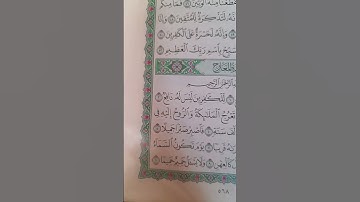 مِنْهُ ٱلْوَتِينَ فَمَا مِنكُم
لَتَذْكِرَةٌ لِّلْمُتَّقِينَ وَإِنَّا
وَإِنَّهُۥ لَحَسْرَةٌ عَلَى ٱلْكَٰفِرِينَ
فَسَبِّحْ بِٱسْمِ رَبِّكَ ٱلْعَظِيمِ
ٱلرَّحْمَٰنِ ٱلرَّحِيمِ
لِّلْكَٰفِرِينَ لَيْسَ لَهُۥ دَافِعٌ
تَعْرُجُ ٱلْمَلَٰٓئِكَةُ وَٱلرُّوحُ إِلَيْهِ فِى
سَنَةٍ فَٱصْبِرْ صَبْرًا جَمِيلًا
قَرِيبًا يَوْمَ تَكُونُ ٱلسَّمَآءُ
كَٱلْعِهْنِ وَلَا يَسْـَٔلُ حَمِيمٌ حَمِيمًا
٥٦٨